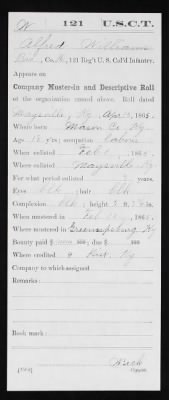 W 121 U.S.C.T.
Alfred Williams
Co. 121 Reg't U. S. Col'd Infantry.
Appears on
Company Muster-in and Descriptive Roll
of the organization named above. Roll dated
Maysville, Ky, 1865.
Where born Mason Co, Ky.
Age years; occupation Labor
When enlisted Feb , 1865.
Where enlisted Maysville Ky
For what period enlisted years.
Eyes blk ; hair blk
Complexion blk ; height 5 ft. in.
When mustered in Feb , 1865.
Where mustered in Ky
Bounty paid $ 100; due $ 100
Where credited Ky
Company to which assigned
Remarks:
Book mark:
Copyist.